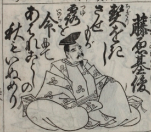 藤原基俊
契をきし
させもか
露を
命にて
あはれことしの
秋もいぬめり